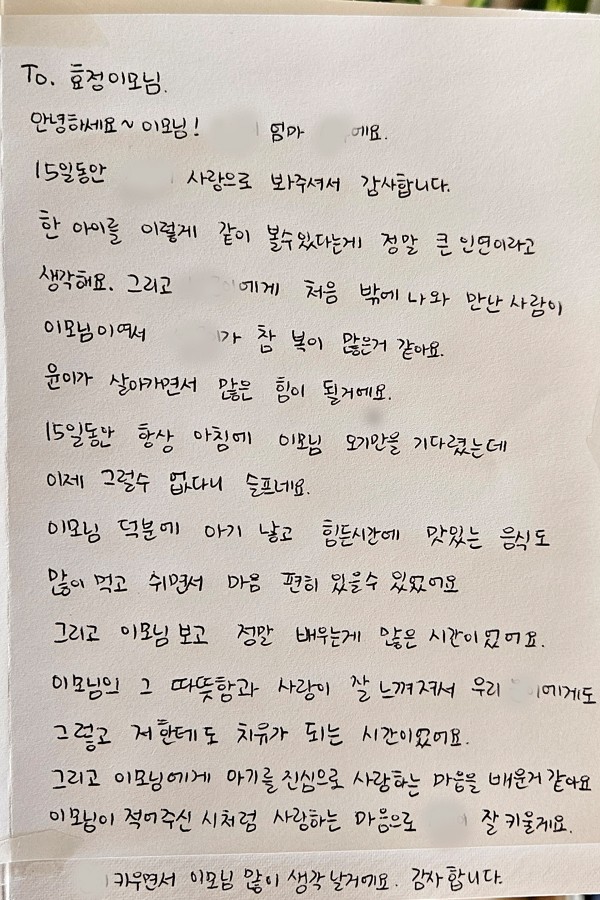 To. 효정이모님.
안녕하세요~ 이모님! 엄마 에요.
15일동안 사랑으로 봐주셔서 감사합니다.
한 아이를 이렇게 같이 볼수있다는게 정말 큰 인연이라고
생각해요. 그리고 에게 처음 밖에 나와 만난 사람이
이모님이여서 가 참 복이 많은거 같아요.
윤이가 살아가면서 많은 힘이 될거에요.
15일동안 항상 아침에 이모님 오기만을 기다렸는데
이제 그럴수 없다니 슬프네요.
이모님 덕분에 아기 낳고 힘든시간에 맛있는 음식도
많이 먹고 쉬면서 마음 편히 있을수 있었어요
그리고 이모님 보고 정말 배우는게 많은 시간이었어요.
이모님의 그 따뜻함과 사랑이 잘 느껴져서 우리 에게도
그렇고 저한테도 치유가 되는 시간이었어요.
그리고 이모님에게 아기를 진심으로 사랑하는 마음을 배운거 같아요
이모님이 적어주신 시처럼 사랑하는 마음으로 잘 키울게요.
키우면서 이모님 많이 생각 날거에요. 감사합니다.